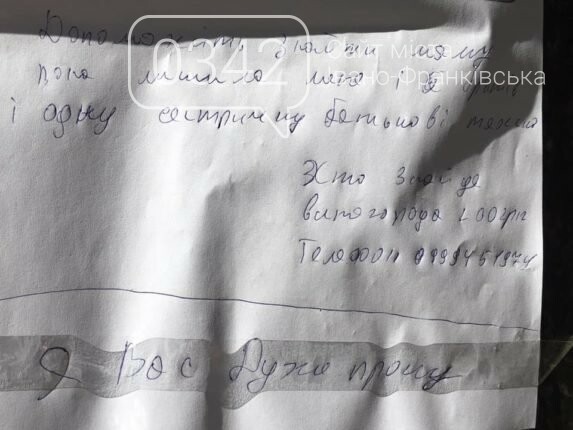 Допоможіть знайти маму
вона лишила мене і
і одну сестричку батькові
Хто знайде
винагорода 200грн
Телефон 0999451974
Я Вас Дуже прошу
0342
Сайт міста
Івано-Франківська